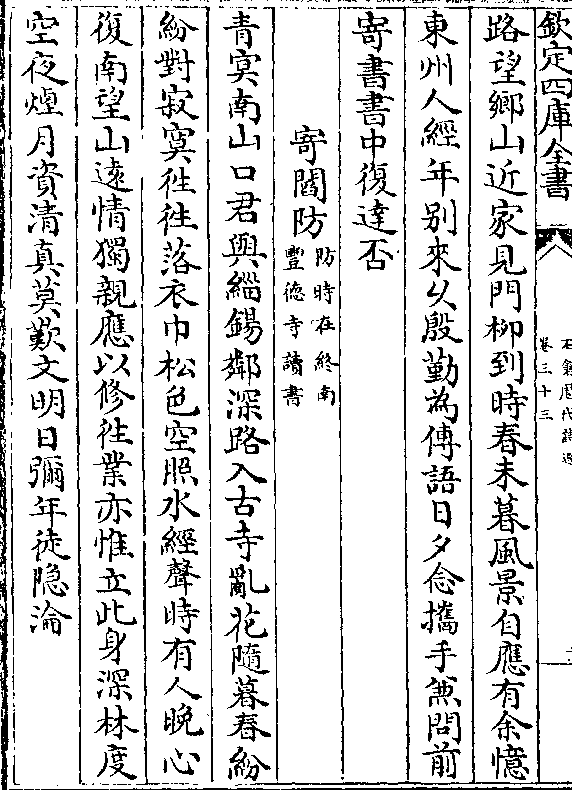 欽定四庫全書
石倉歷代詩選
卷三十三
路望鄉山近家見門柳到時春未暮風景自應有余憶
東州人經年别來乆殷勤為傳語日夕念攜手兼問前
寄書書中復達否
寄閻防
防時在終南
豐德寺讀書
青冥南山口君與緇錫鄰深路入古寺亂花隨暮春紛
紛對寂寞徃徃落衣巾松色空照水經聲時有人晚心
復南望山逺情獨親應以修徃業亦惟立此身深林度
空夜煙月資清真莫歎文明日彌年徒隐淪